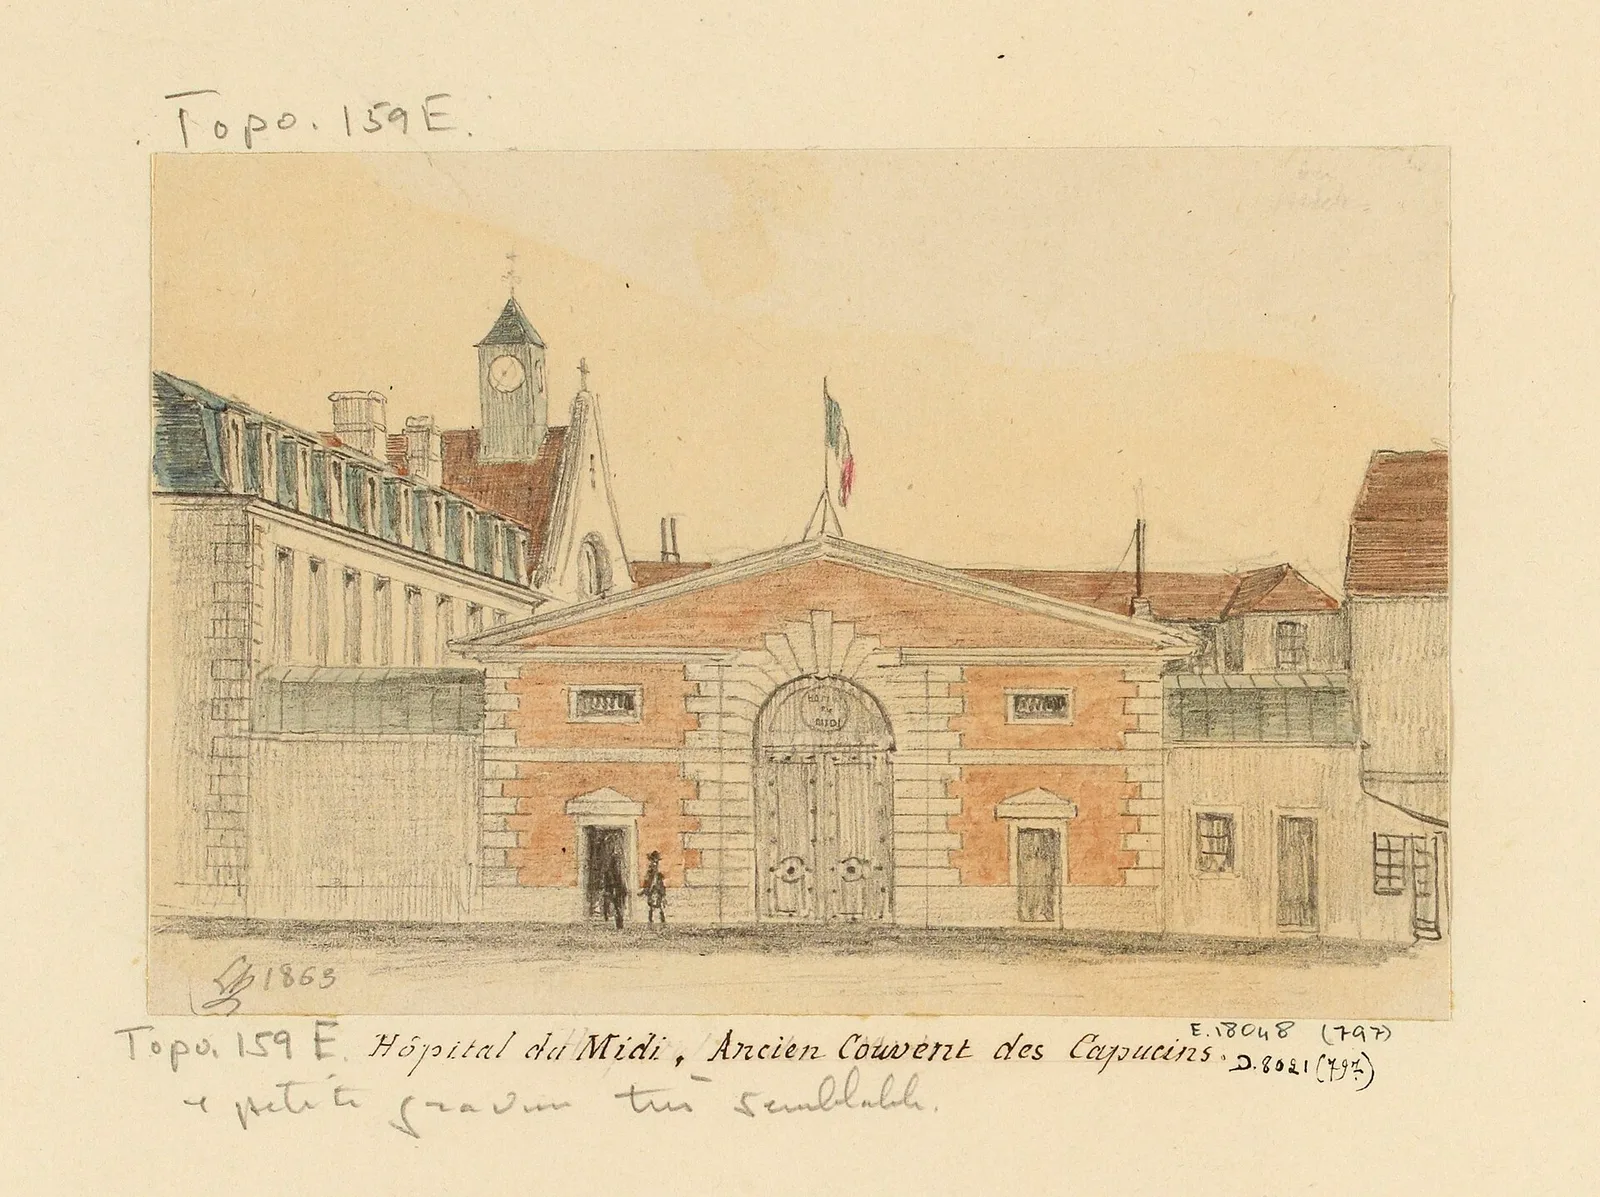 Topo. 159 E.
HOPITAL
DU
MIDI
1863
E.18048 (797)
Topo. 159 E. Hôpital du Midi, Ancien Couvent des Capucins.
D.8021 (797)
petite gravure très semblable.